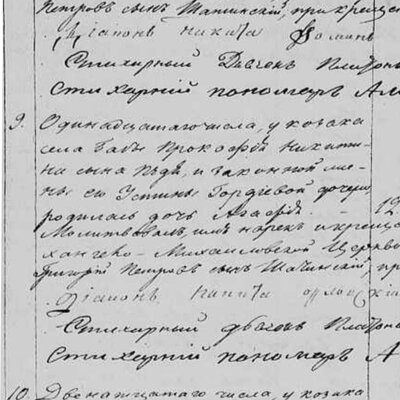 Петровъ сынъ Шатинскій, при крещен
Діаконъ Никита Фоминъ
Стихарный Дьячекъ Платонъ
Стихарній пономарь Ал
9. Одинадцатаго числа, у козака
села Бабы Прокофія Никити-
на сына и законной же-
ны его Устины Гордіевой дочери
родилась дочь Агафія. — 12.
Молитвовалъ, имя нарекъ и крещ
Михаиловской Церкви
Григорій Петровъ сынъ Шатинскій, пр
Діаконъ Никита
Стихарный дьячекъ Платонъ
Стихарній пономарь А
10. Двенатцатаго числа, у козака